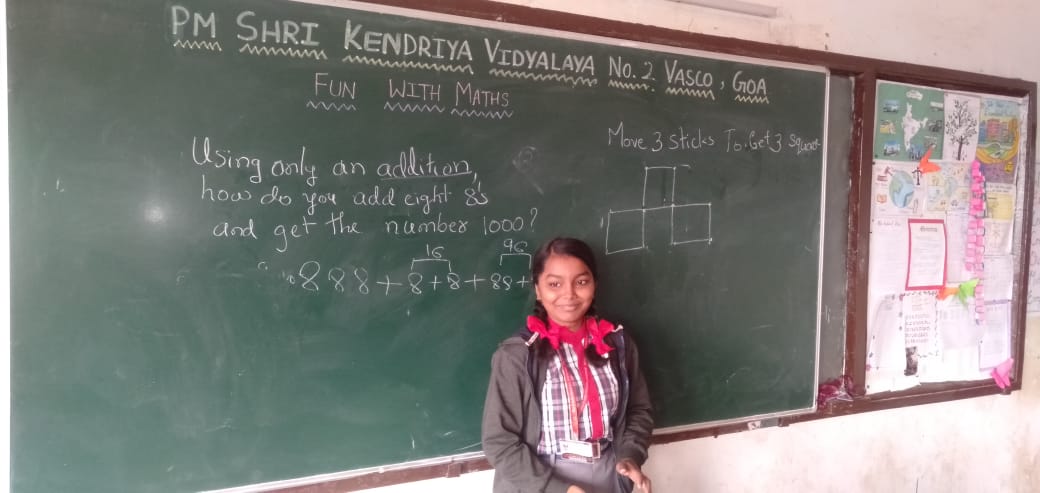 PM SHRI KENDRIYA VIDYALAYA NO. 2 VASCO, GOA
FUN WITH MATHS
Using only an addition,
how do you add eight 8's
and get the number 1000?
16 96
888+8+8+88+
Move 3 Sticks To Get 3 Square